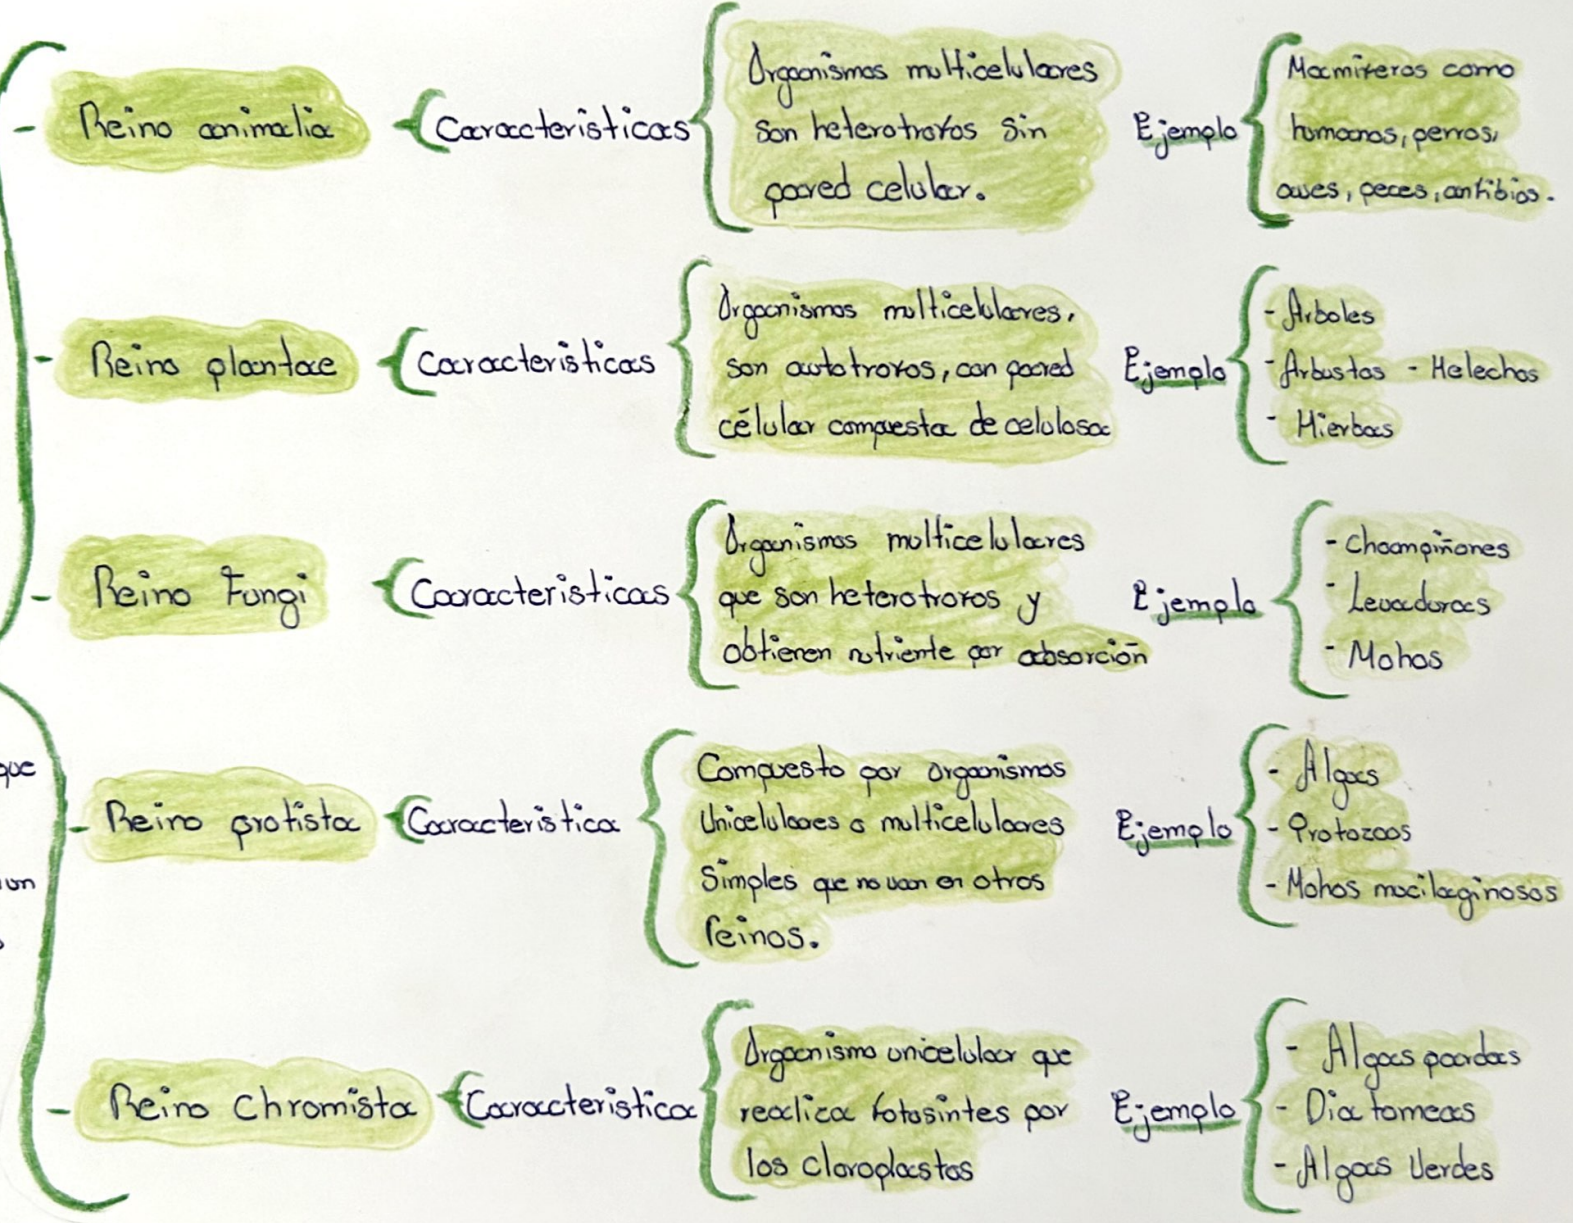 - Reino animalia
Caracteristicas
Organismos multicelulares
son heterotrofos sin
pared celular.
Ejemplo
Mamiferos como
humanos, perros,
aves, peces, anfibios.
- Reino plantae
Caracteristicas
Organismos multicelulares,
son autotrofos, con pared
célular compuesta de celulosa
Ejemplo
- Arboles
- Arbustos - Helechos
- Hierbas
- Reino Fungi
Caracteristicas
Organismos multicelulares
que son heterotrofos y
obtienen nutriente por absorción
Ejemplo
- Champiñones
- Levaduras
- Mohos
que
un
- Reino protista
Caracteristica
Compuesto por organismos
Unicelulares o multicelulares
Simples que no van en otros
reinos.
Ejemplo
- Algas
- Protozoos
- Mohos mucilaginosos
- Reino Chromista
Caracteristica
Organismo unicelular que
realiza fotosintes por
los cloroplastos
Ejemplo
- Algas pardas
- Diatomeas
- Algas Verdes